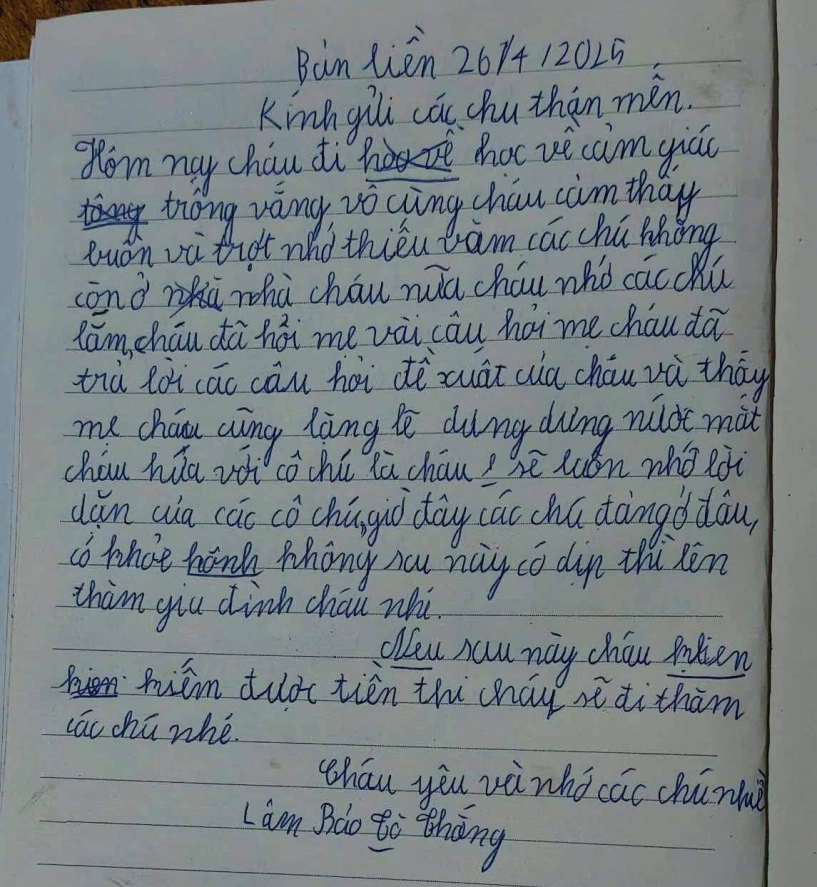 Bản liền 26/4/2025
Kính gửi các chu thán mến.
Hôm nay cháu đi học về cảm giác
trống vắng vô cùng cháu cảm thấy
buồn và trợt nhớ thiếu vắm các chú không
còn ở nhà cháu nữa cháu nhớ các chú
lắm, cháu đã hỏi mẹ vài câu hỏi mẹ cháu đã
trả lời các câu hỏi đề xuất của cháu và thấy
mẹ cháu cũng lặng lẽ dưng dưng nước mắt
cháu hứa với cô chú là cháu sẽ luôn nhớ lời
dặn của các cô chú, giờ đây các chú đang ở đâu,
có khỏe không sau này có dịp thì lên
thăm gia đình cháu nhé.
Nếu sau này cháu
kiếm được tiền thì cháu sẽ đi thăm
các chú nhé.
Cháu yêu và nhớ các chú nhiề
Lâm Bảo Cò Thắng